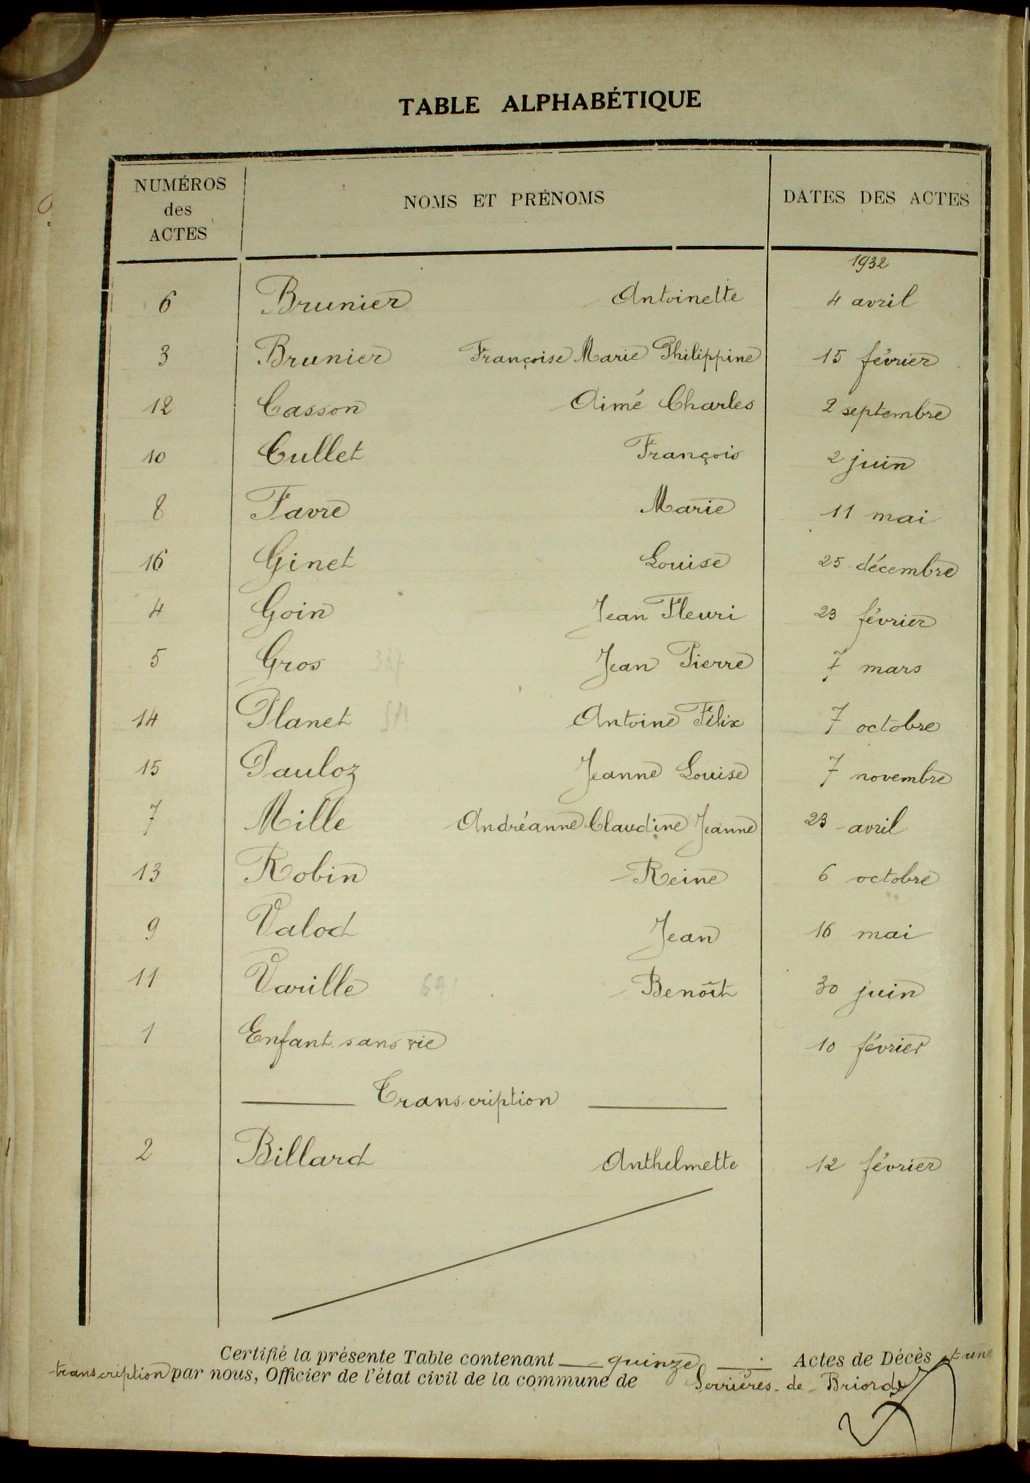 TABLE ALPHABÉTIQUE
NUMÉROS des ACTES NOMS ET PRÉNOMS DATES DES ACTES
1932
6 Brunier Antoinette 4 avril
3 Brunier Françoise Marie Philippine 15 février
12 Casson Aimé Charles 2 septembre
10 Cullet François 2 juin
8 Favre Marie 11 mai
16 Ginet Louise 25 décembre
4 Goin Jean Fleuri 23 février
5 Gros Jean Pierre 7 mars
14 Planet Antoine Félix 7 octobre
15 Pauloz Jeanne Louise 7 novembre
7 Mille Andréanne Claudine Jeanne 23 avril
13 Robin Reine 6 octobre
9 Valod Jean 16 mai
11 Varille Benoît 30 juin
1 Enfant sans vie 10 février
Transcription
2 Billard Anthelmette 12 février
Certifié la présente Table contenant quinze Actes de Décès et une
transcription par nous, Officier de l'état civil de la commune de Serrières-de-Briord